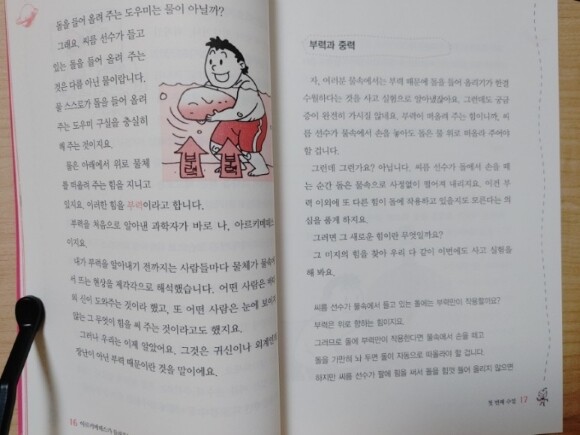 돌을 들어 올려 주는 도우미는 물이 아닐까?
그래요. 씨름 선수가 들고
있는 돌을 들어 올려 주는
것은 다름 아닌 물이랍니다.
물 스스로가 돌을 들어 올려
주는 도우미 구실을 충실히
해 주는 것이지요.
물은 아래에서 위로 물체
를 떠올려 주는 힘을 지니고
있지요. 이러한 힘을 부력이라고 합니다.
부력
부력
부력을 처음으로 알아낸 과학자가 바로 나, 아르키메데스
이지요.
내가 부력을 알아내기 전까지는 사람들마다 물체가 물속에
서 뜨는 현상을 제각각으로 해석했습니다. 어떤 사람은
의 신이 도와주는 것이라 했고, 또 어떤 사람은 눈에 보이
않는 그 무엇이 힘을 써 주는 것이라고도 했지요.
그러나 우리는 이제 알았어요. 그것은 귀신이나 외계인
장난이 아닌 부력 때문이란 것을 말이에요.
16 아르키메데스가 들려주
부력과 중력
자, 여러분 물속에서는 부력 때문에 돌을 들어 올리기가 한결
수월하다는 것을 사고 실험으로 알아냈잖아요. 그런데도 궁금
증이 완전히 가시질 않네요. 부력이 떠올려 주는 힘이니까, 씨
름 선수가 물속에서 손을 놓아도 돌은 물 위로 떠올라 주어야
할 겁니다.
그런데 그런가요? 아닙니다. 씨름 선수가 돌에서 손을 떼
는 순간 돌은 물속으로 사정없이 떨어져 내리지요. 이건 부
력 이외에 또 다른 힘이 돌에 작용하고 있을지도 모른다는 의
심을 품게 하지요.
그러면 그 새로운 힘이란 무엇일까요?
그 미지의 힘을 찾아 우리 다 같이 이번에도 사고 실험을
해 봐요.
씨름 선수가 물속에서 들고 있는 돌에는 부력만이 작용할까요?
부력은 위로 향하는 힘이지요.
그러므로 돌에 부력만이 작용한다면 물속에서 손을 떼고
돌을 가만히 놔 두면 돌이 저절로 떠올라야 할 겁니다.
하지만 씨름 선수가 팔에 힘을 써서 돌을 힘껏 들어 올리지 않으면
첫 번째 수업 17